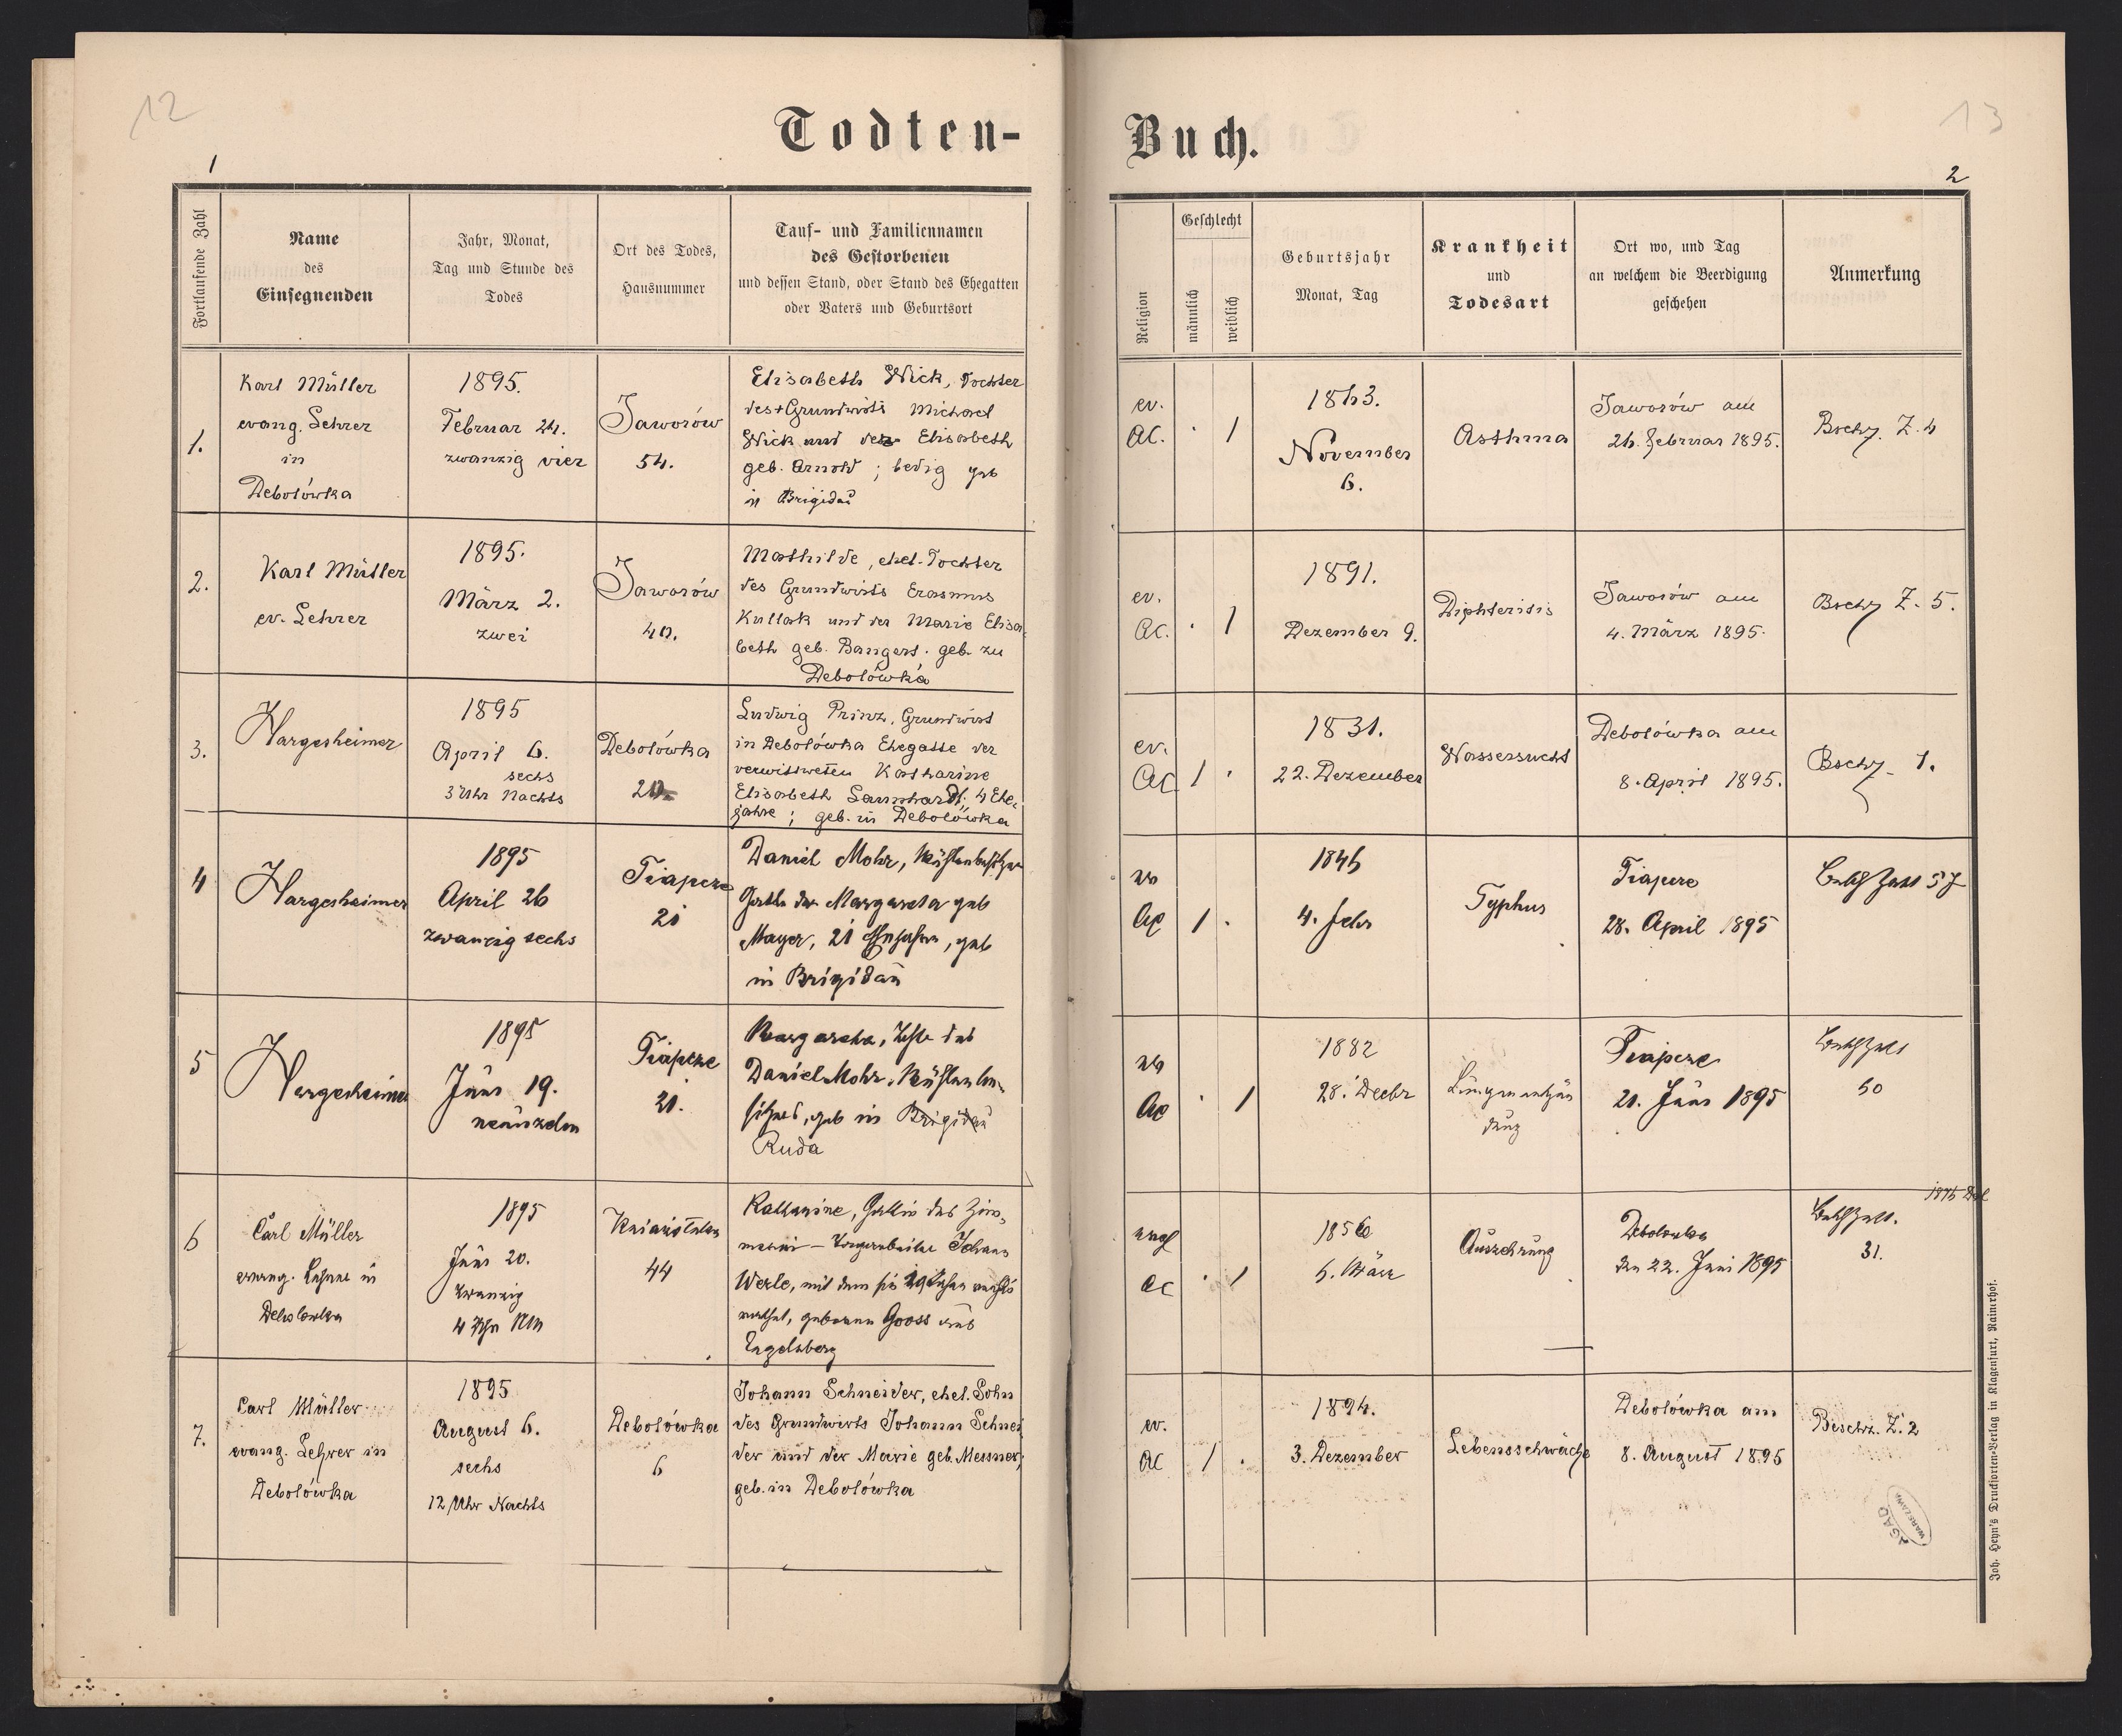 12
Todten-
1
Fortlaufende Zahl
Name
des
Einsegnenden
Jahr, Monat,
Tag und Stunde des
Todes
Ort des Todes,
Hausnummer
Tauf- und Familiennamen
des Gestorbenen
und dessen Stand, oder Stand des Ehegatten
oder Vaters und Geburtsort
1.
Karl Müller
evang. Lehrer
in
Debolówka
1895.
Februar 24.
zwanzig vier
Jaworów
54.
Elisabeth Wick, Tochter
des + Grundwirts Michael
Wick und der Elisabeth
geb. Arnold; ledig geb
in Brigidau
2.
Karl Müller
ev. Lehrer
1895.
März 2.
zwei
Jaworów
Mathilde, ehel. Tochter
des Grundwirts Erasmus
Kullak und der Marie Elisa-
beth geb. Bangert. geb. zu
Debolówka
3.
Hargesheimer
1895
April 6.
sechs
3 Uhr Nachts
Debolówka
Ludwig Prinz, Grundwirt
in Debolówka Ehegatte der
verwittweten Katharine
Elisabeth 4 Ehe-
jahre; geb. in Debolówka
4
Hargesheimer
1895
April 26
zwanzig sechs
Tiapcze
21
Daniel Mohr, Mühlenbesitzer
Gatte der Margareta geb
Mayer, 21 Ehejahre, geb
in Brigidau
5
Hargesheimer
1895
Juni 19.
neunzehn
Tiapcze
21.
Margareta, Tochter des
Daniel Mohr, Mühlenbe-
sitzers, geb in Brigidau
Ruda
6
Carl Müller
evang. Lehrer in
Debolowka
1895
Juni 20.
zwanzig
4 Uhr NM
44
Katharine, Gattin des
Johann
Werle, mit dem sie
geborene Gooss aus
Engelsberg
7.
Carl Müller
evang. Lehrer in
Debolówka
1895
August 6.
sechs
12 Uhr Nachts
Debolówka
6
Johann Schneider, ehel. Sohn
des Grundwirts Johann Schnei
der und der Marie geb. Messner;
geb. in Debolówka
13
Buch.
2
Religion
Geschlecht
männlich
weiblich
Geburtsjahr
Monat, Tag
Krankheit
und
Todesart
Ort wo, und Tag
an welchem die Beerdigung
geschehen
Anmerkung
ev.
AC.
1
1843.
November
6.
Asthma
Jaworów am
26. Februar 1895.
Beschz. Z. 4
ev.
AC.
1
1891.
Dezember 9.
Diphteritis
Jaworów am
4. März 1895.
Beschz Z. 5.
ev.
AC
1
1831.
22. Dezember
Wassersucht
Debolówka am
8. April 1895.
Beschz. 1.
ev
AC
1
4. Febr
Typhus
Tiapcze
28. April 1895
57
ev
AC
1
1882
28. Decbr
Lungenentzün
dung
Tiapcze
21. Juni 1895
evgl
AC
1
Auszehrung
Debolowka
den 22. Juni 1895
31.
ev.
AC
1
1894.
3. Dezember
Lebensschwäche
Debolówka am
8. August 1895
Beschz. Z. 2
AGAD
WARSZAWA
Joh. Heyn's Drucksorten-Verlag in Klagenfurt, Rainerhof.